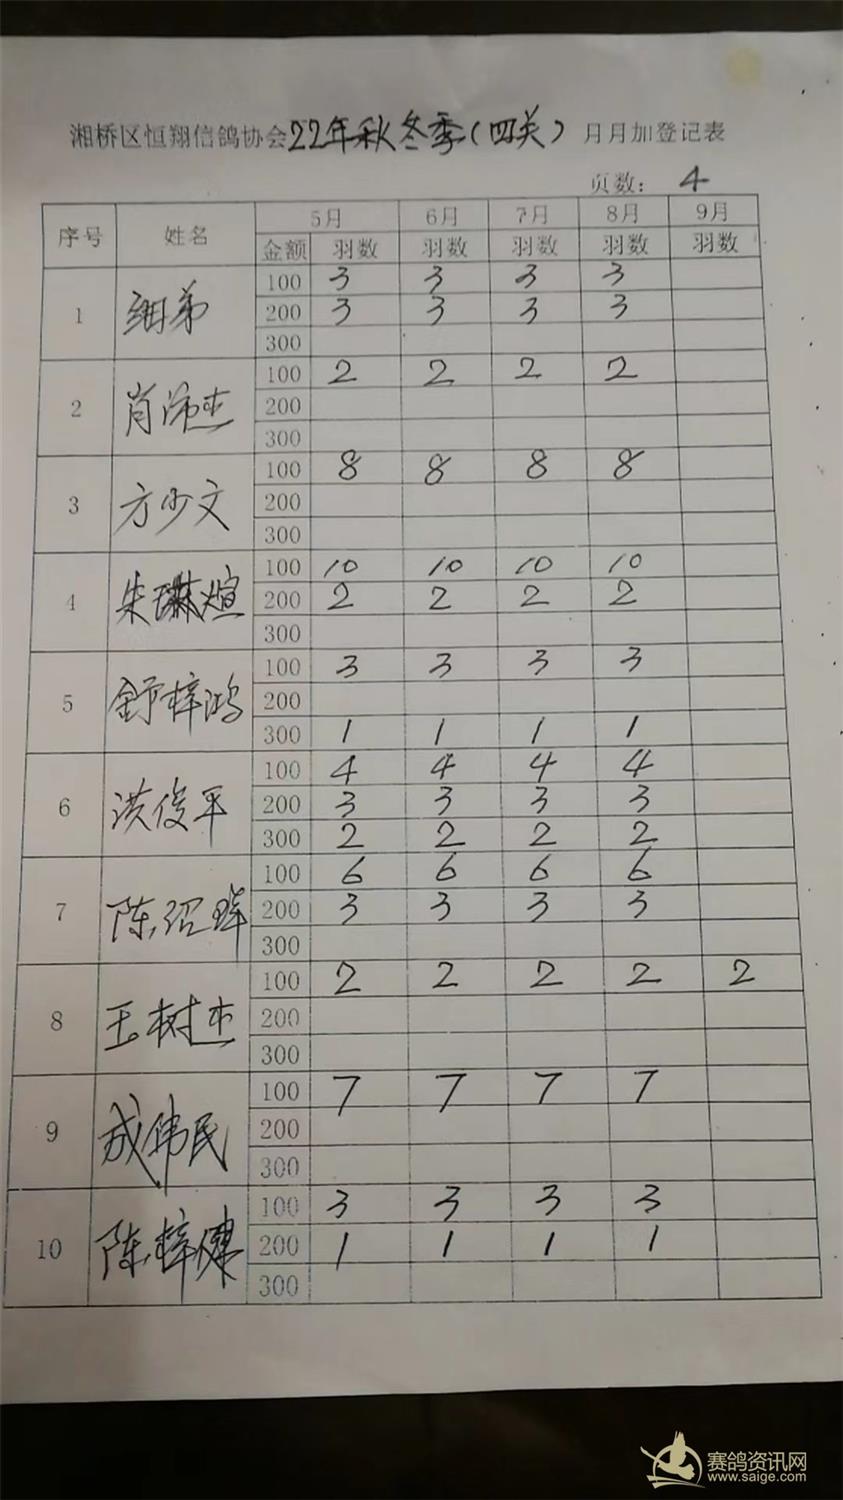 湘桥区恒翔信鸽协会22年秋冬季(四关)月月加登记表
页数: 4
序号 姓名 5月 6月 7月 8月 9月
金额 羽数 羽数 羽数 羽数 羽数
100 3 3 3 3
1 细弟 200 3 3 3 3
300
100 2 2 2 2
2 肖沛杰 200
300
100 8 8 8 8
3 方少文 200
300
100 10 10 10 10
4 朱琳煊 200 2 2 2 2
300
100 3 3 3 3
5 舒梓鸿 200
300 1 1 1 1
100 4 4 4 4
6 洪俊平 200 3 3 3 3
300 2 2 2 2
100 6 6 6 6
7 陈绍辉 200 3 3 3 3
300
100 2 2 2 2 2
8 王树杰 200
300
100 7 7 7 7
9 成伟民 200
300
100 3 3 3 3
10 陈梓健 200 1 1 1 1
300
赛鸽资讯网
www.saige.com